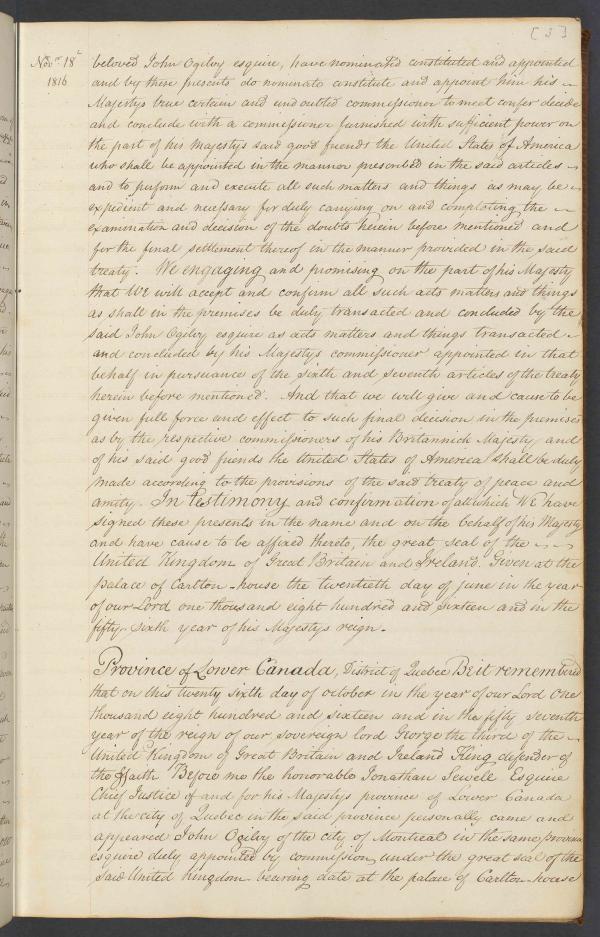 [3]
Novr. 18t
1816
beloved John Ogilvy esquire, have nominated constituted and appointed
and by these presents do nominate constitute and appoint him his ~
Majestys true certain and undoubted commissioner to meet confer decide
and conclude with a commissioner furnished with sufficient power on
the part of his majestys said good friends the United States of America
who shall be appointed in the manner prescribed in the said articles ~
and to perform and execute all such matters and things as may be ~
expedient and necessary for duly carrying on and completing the ~
examination and decision of the doubts herein before mentioned and
for the final settlement thereof in the manner provided in the said
treaty. We engaging and promising on the part of his Majesty
that We will accept and confirm all such acts matters and things
as shall in the premises be duly transacted and concluded by the
said John Ogilvy esquire as acts matters and things transacted ~
and concluded by his Majestys commissioner appointed in that
behalf in pursuance of the sixth and seventh articles of the treaty
herein before mentioned. And that we will give and cause to be
given full force and effect to such final decision in the premises
as by the respective commissioners of his Britannick Majesty and
of his said good friends the United States of America shall be duly
made according to the provisions of the said treaty of peace and
amity. In testimony and confirmation of all which We have
signed these presents in the name and on the behalf of his Majesty
and have cause to be affixed thereto, the great seal of the ~ ~
United Kingdom of Great Britain and Ireland. Given at the
palace of Carlton-house the twentieth day of june in the year
of our Lord one thousand eight hundred and sixteen and in the
fifty-sixth year of his Majestys reign.
Province of Lower Canada, District of Quebec Be it remembered
that on this twenty sixth day of october in the year of our Lord One
thousand eight hundred and sixteen and in the fifty seventh
year of the reign of our sovereign lord George the third of the ~
United Kingdom of Great Britain and Ireland King, defender of
the faith Before me the honorable Jonathan Sewell Esquire
Chief Justice of and for his Majestys province of Lower Canada
at the city of Quebec in the said province personally came and
appeared John Ogilvy of the city of Montreal in the same province
esquire duly appointed by commission under the great seal of the
said United kingdom bearing date at the palace of Carlton-house